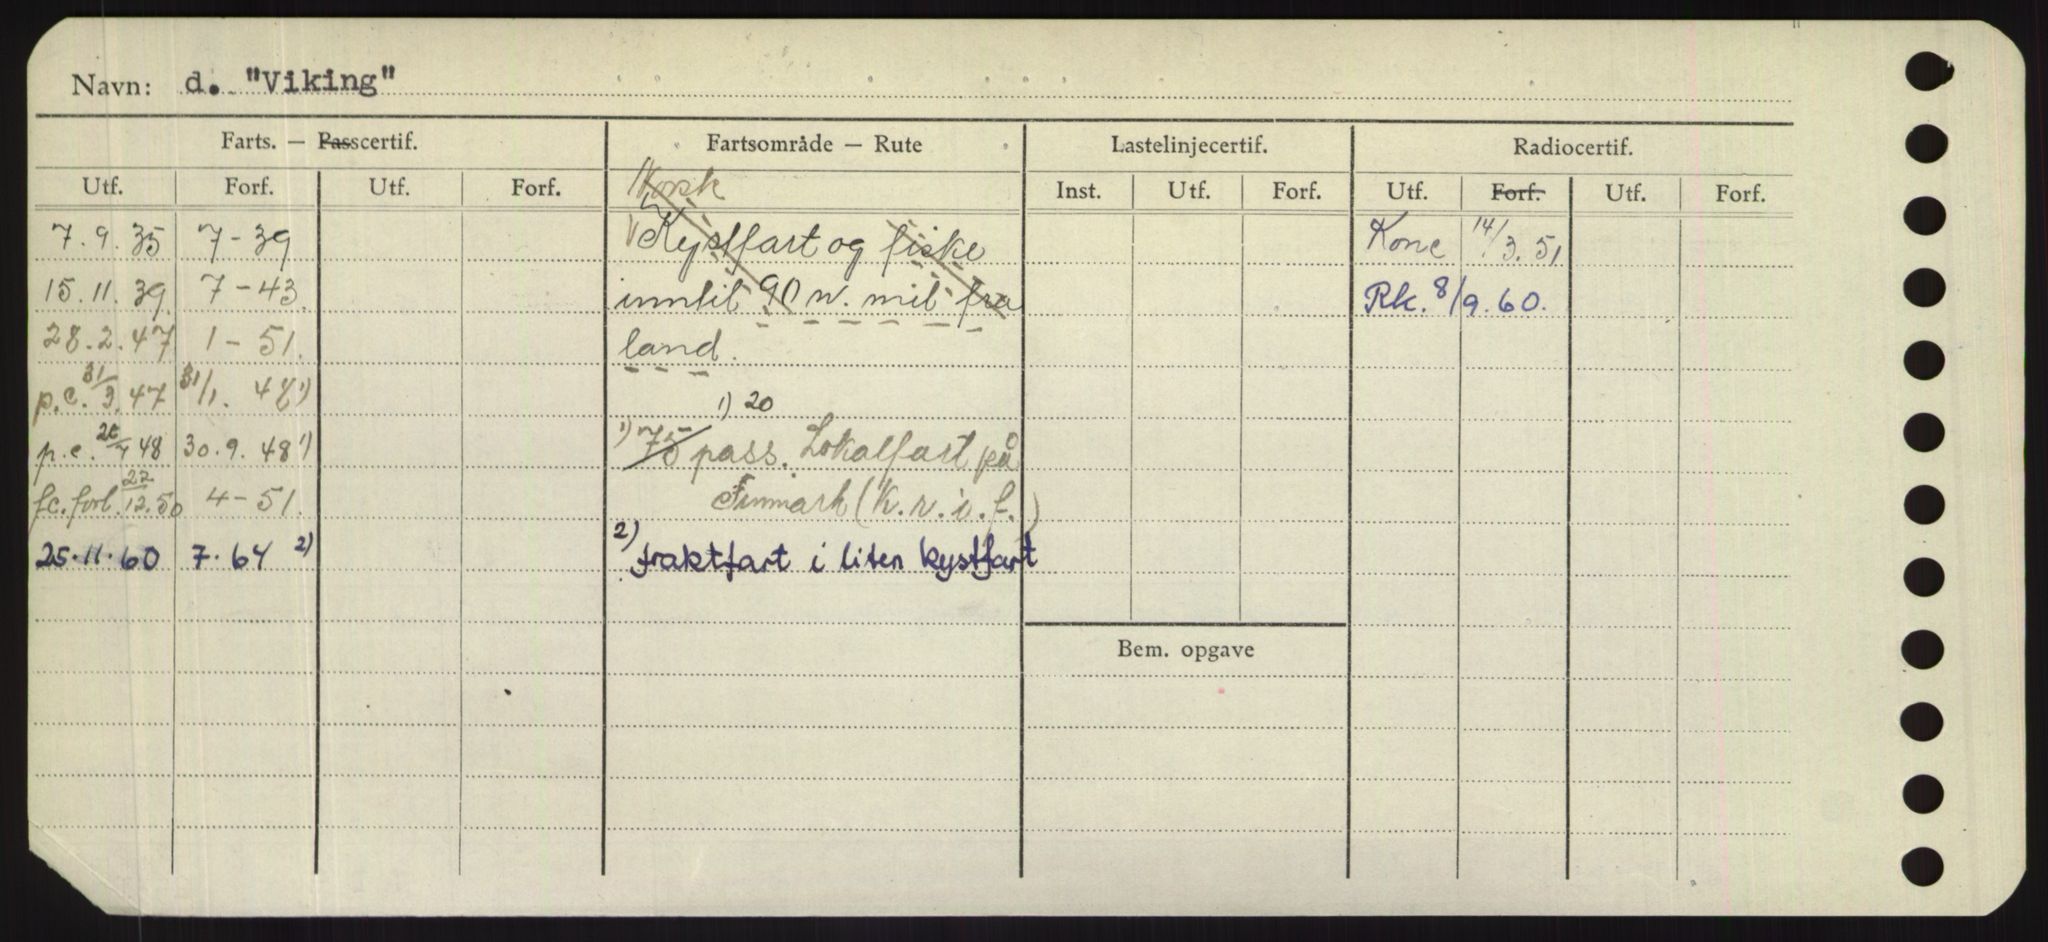 Navn: d. "Viking"
Farts. — Passcertif. Fartsområde — Rute Lastelinjecertif. Radiocertif.
Utf. Forf. Utf. Forf. Inst. Utf. Forf. Utf. Forf. Utf. Forf.
7.9.35 7-39 Kystfart og fiske Konc 14/3.51
15.11.39 7-43 inntil 90 n. mil fra Rk. 8/9.60.
28.2.47 1-51. land.
p.c. 31/3.47 31/1. 48 1)
1) 20
p.c. 48 30.9.48 1) 1) 75 pass. Lokalfart på
fc. forl. 22/12.50 4-51. Finmark (k.r.i.f.)
25.11.60 7.64 2) 2) fraktfart i liten kystfart
Bem. opgave